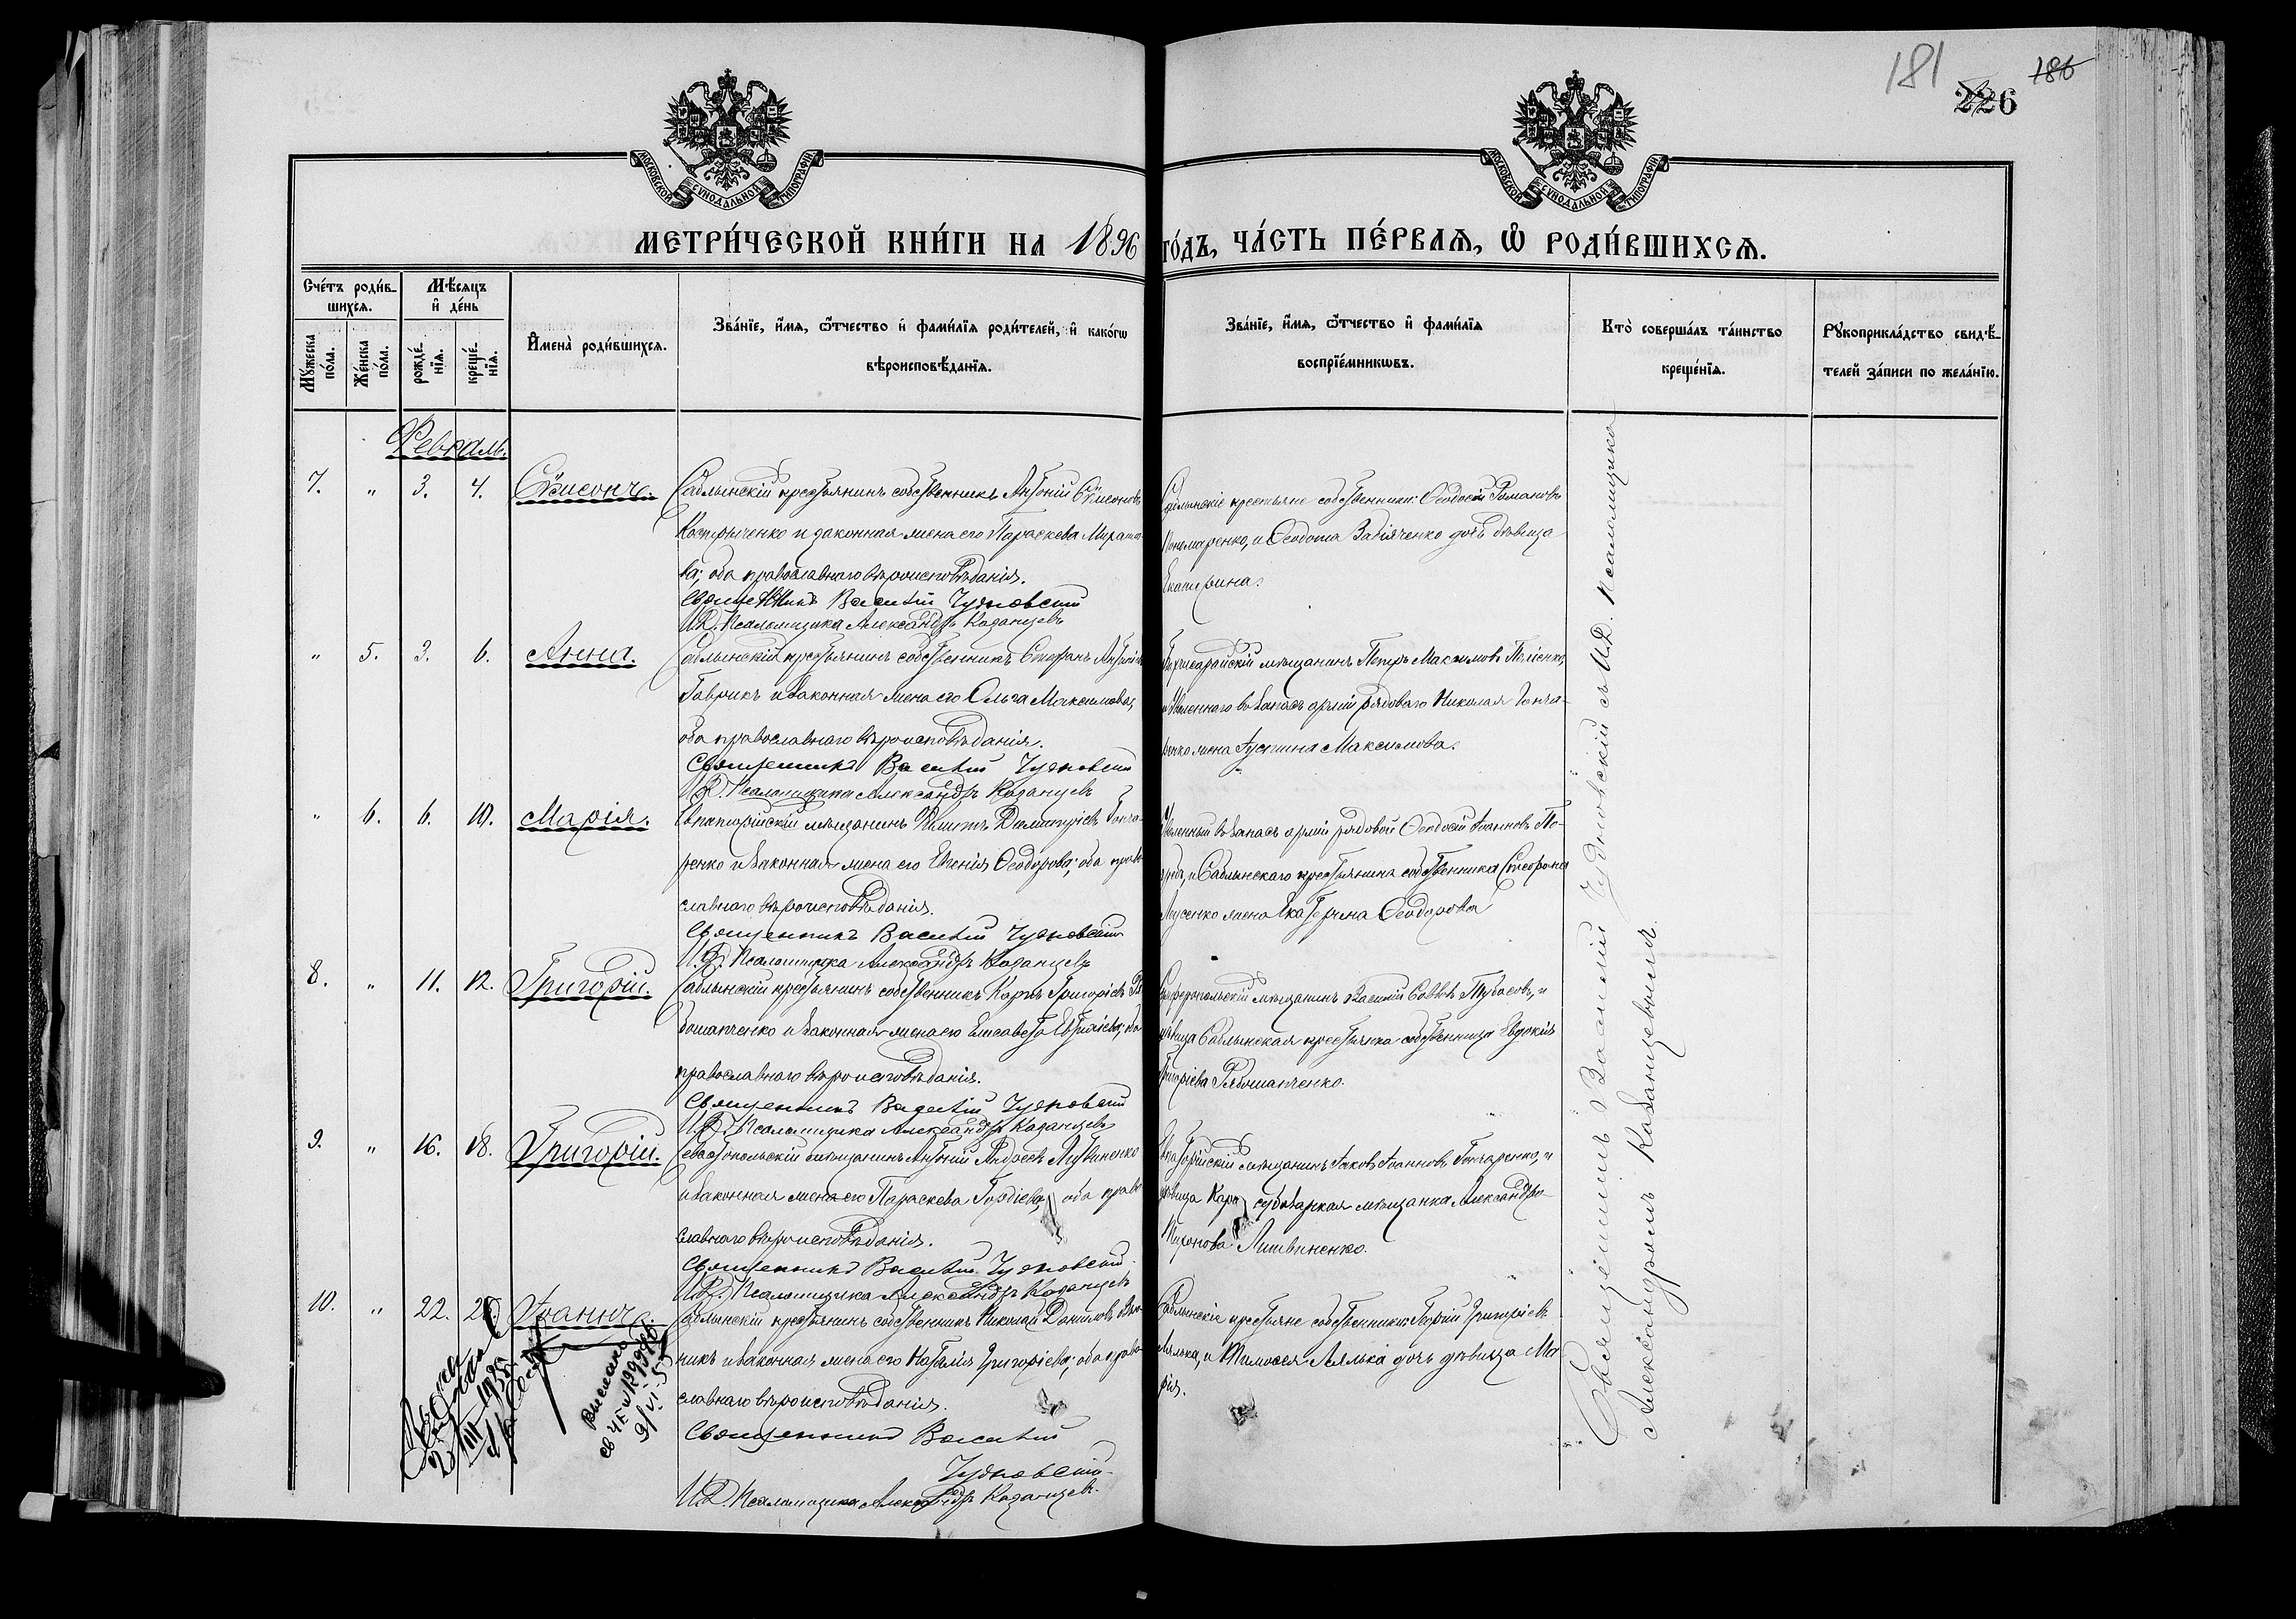 181
186
226
МОСКОВСКОЙ СѴНОДАЛЬНОЙ ТИПОГРАФІИ
МОСКОВСКОЙ СѴНОДАЛЬНОЙ ТИПОГРАФІИ
МЕТРИ́ЧЕСКОЙ КНИ́ГИ НА 1896 ГО́ДЪ, ЧА́СТЬ ПЕ́РВАЯ, Ѽ РОДИ́ВШИХСЯ.
Сче́тъ роди́в-
шихся.
Мѣ́сяцъ
и҆ де́нь
Мꙋ́жеска
по́ла.
Же́нска
по́ла.
рожде́-
нїя.
креще́-
нїя.
И҆мена̀ роди́вшихся.
Зва́нїе, и҆́мя, ѻ҆́тчество и҆ фами́лїя роди́телей, и҆ како́гѡ
вѣроисповѣ́данїя.
Зва́нїе, и҆́мя, ѻ҆́тчество и҆ фами́лїя
воспрїе́мникѡвъ.
Кто̀ соверша́лъ та́инство
креще́нїя.
Рꙋкоприкла́дство свидѣ́-
телей за́писи по жела́нїю.
Февраль.
7. " 3. 4. Сѵмеонъ. Саблынскій крестьянинъ собственникъ Антоній Сѵмеоновъ
Костриченко и законная жена его Параскева Мирано-
ва; оба православнаго вѣроисповѣданія.
Священникъ Василій Чудновскій
И.Д. Псаломщика Александръ Казанцевъ
Саблынскіе крестьяне собственники: Ѳеодосій Романовъ
Пономаренко, и Ѳеодота Забіяченко дочь дѣвица
Екатерина.
" 5. 3. 6. Анна. Саблынскій крестьянинъ собственникъ Стефанъ Антоніевъ
Гаврикъ и законная жена его Ольга Максимова;
оба православнаго вѣроисповѣданія.
Священникъ Василій Чудновскій
И.Д. Псаломщика Александръ Казанцевъ
мѣщанинъ Петръ Максимовъ
и уволеннаго въ запасъ арміи рядоваго Николая Гонча-
ренко жена Іустина Максимова.
" 6. 6. 10. Марія. Евпаторійскій мѣщанинъ Димитріевъ Гонча-
ренко и законная жена его Евгенія Ѳеодорова; оба право-
славнаго вѣроисповѣданія.
Священникъ Василій Чудновскій
И.Д. Псаломщика Александръ Казанцевъ
Уволенный въ запасъ арміи рядовой Ѳеодосій Іоанновъ
и Саблынскаго крестьянина собственника Стефана
жена Екатерина Ѳеодорова
8. " 11. 12. Григорій. Саблынскій крестьянинъ собственникъ Карпъ Григоріевъ Ря-
бошапченко и законная жена его Елисавета оба
православнаго вѣроисповѣданія.
Священникъ Василій Чудновскій
И.Д. Псаломщика Александръ Казанцевъ
Симферопольскій мѣщанинъ Василій Саввовъ и
дѣвица Саблынская крестьянка собственница Евдокія
Григоріева Рябошапченко.
9. " 16. 18. Григорій. Севастопольскій мѣщанинъ Антоній Литвиненко
и законная жена его Параскева Гордіева; оба право-
славнаго вѣроисповѣданія.
Священникъ Василій Чудновскій
И.Д. Псаломщика Александръ Казанцевъ
Евпаторійскій мѣщанинъ Іаковъ Іоанновъ Гончаренко, и
дѣвица Карасубазаркая мѣщанка Александра
Литвиненко.
10. " 22. Іоаннъ. Саблынскій крестьянинъ собственникъ Николай Даниловъ
никъ и законная жена его Наталія Григоріева; оба право-
славнаго вѣроисповѣданія.
Священникъ Василій
Чудновскій.
И.Д. Псаломщика Александръ Казанцевъ.
Саблынскіе крестьяне собственники: Георгій Григоріевъ
Лялька, и Тимоѳея Лялька дочь дѣвица Ма-
рія.
Священникъ Василій Чудновскій съ И.Д. Псаломщика
Александромъ Казанцевымъ